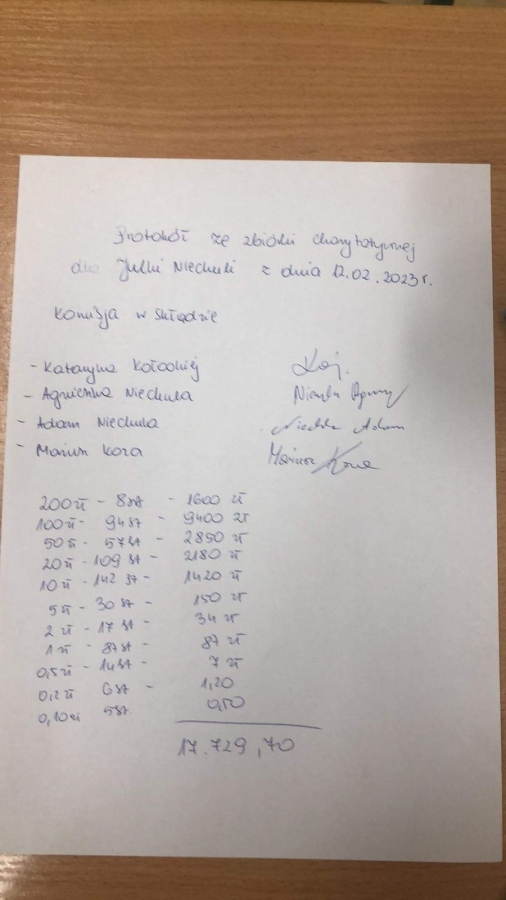 Protokół ze zbiórki charytatywnej
dla Julki Niechuli z dnia 12.02.2023 r.
Komisja w składzie
- Katarzyna Kołodziej
- Agnieszka Niechuła Niechuła
- Adam Niechuła Niechuła Adam
- Mariusz Koza Mariusz Koza
200 zł - 8 szt - 1600 zł
100 zł - 94 szt - 9400 zł
50 zł - 57 szt - 2850 zł
20 zł - 109 szt - 2180 zł
10 zł - 142 szt - 1420 zł
5 zł - 30 szt - 150 zł
2 zł - 17 szt - 34 zł
1 zł - 87 szt - 87 zł
0,5 zł - 14 szt - 7 zł
0,2 zł 6 szt - 1,20
0,10 zł 5 szt 0,50
17.729,70